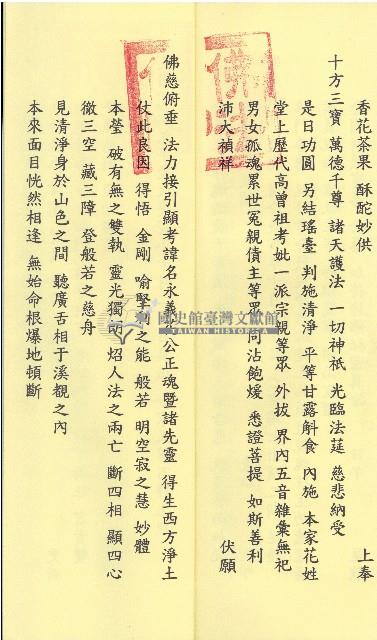 香花茶果 酥酡妙供 上奉
十方三寶 萬德千尊 諸天護法 一切神祇 光臨法莚 慈悲納受
是日功圓 另結瑤臺 判施清淨 平等甘露斛食 內施 本家花姓
堂上歷代高曾祖考妣一派宗親等眾 外拔 界內五音雜彙無祀
男女孤魂累世冤親債主等眾 同沾飽煖 悉證菩提 如斯善利
沛大禎祥 伏願
佛慈俯垂 法力接引顯考諱名永義 公正魂暨諸先靈 得生西方淨土
仗此良因 得悟 金剛 喻堅 之能 般若 明空寂之慧 妙體
本瑩 破有無之雙執 靈光獨朗 炤人法之兩亡 斷四相 顯四心
徹三空 藏三障 登般若之慈舟
見清淨身於山色之間 聽廣舌相于溪覩之內
本來面目恍然相逢 無始命根爆地頓斷
國史館臺灣文獻館
TAIWAN HISTORICA
佛